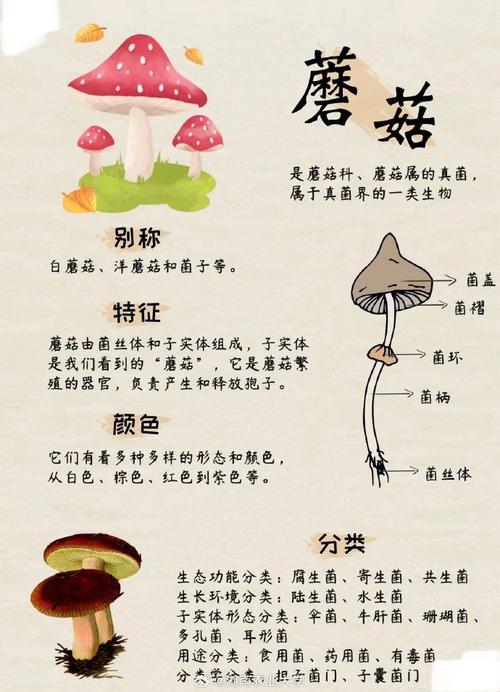 蘑菇
是蘑菇科、蘑菇属的真菌,
属于真菌界的一类生物
别称
白蘑菇、洋蘑菇和菌子等。
特征
蘑菇由菌丝体和子实体组成，子实体
是我们看到的“蘑菇”，它是蘑菇繁
殖的器官，负责产生和释放孢子。
颜色
它们有着多种多样的形态和颜色，
从白色、棕色、红色到紫色等。
菌盖
菌褶
菌环
菌柄
菌丝体
分类
生态功能分类：腐生菌、寄生菌、共生菌
生长环境分类：陆生菌、水生菌
子实体形态分类：伞菌、牛肝菌、珊瑚菌、
多孔菌、耳形菌
用途分类：食用菌、药用菌、有毒菌
分类学分类：担子菌门、子囊菌门